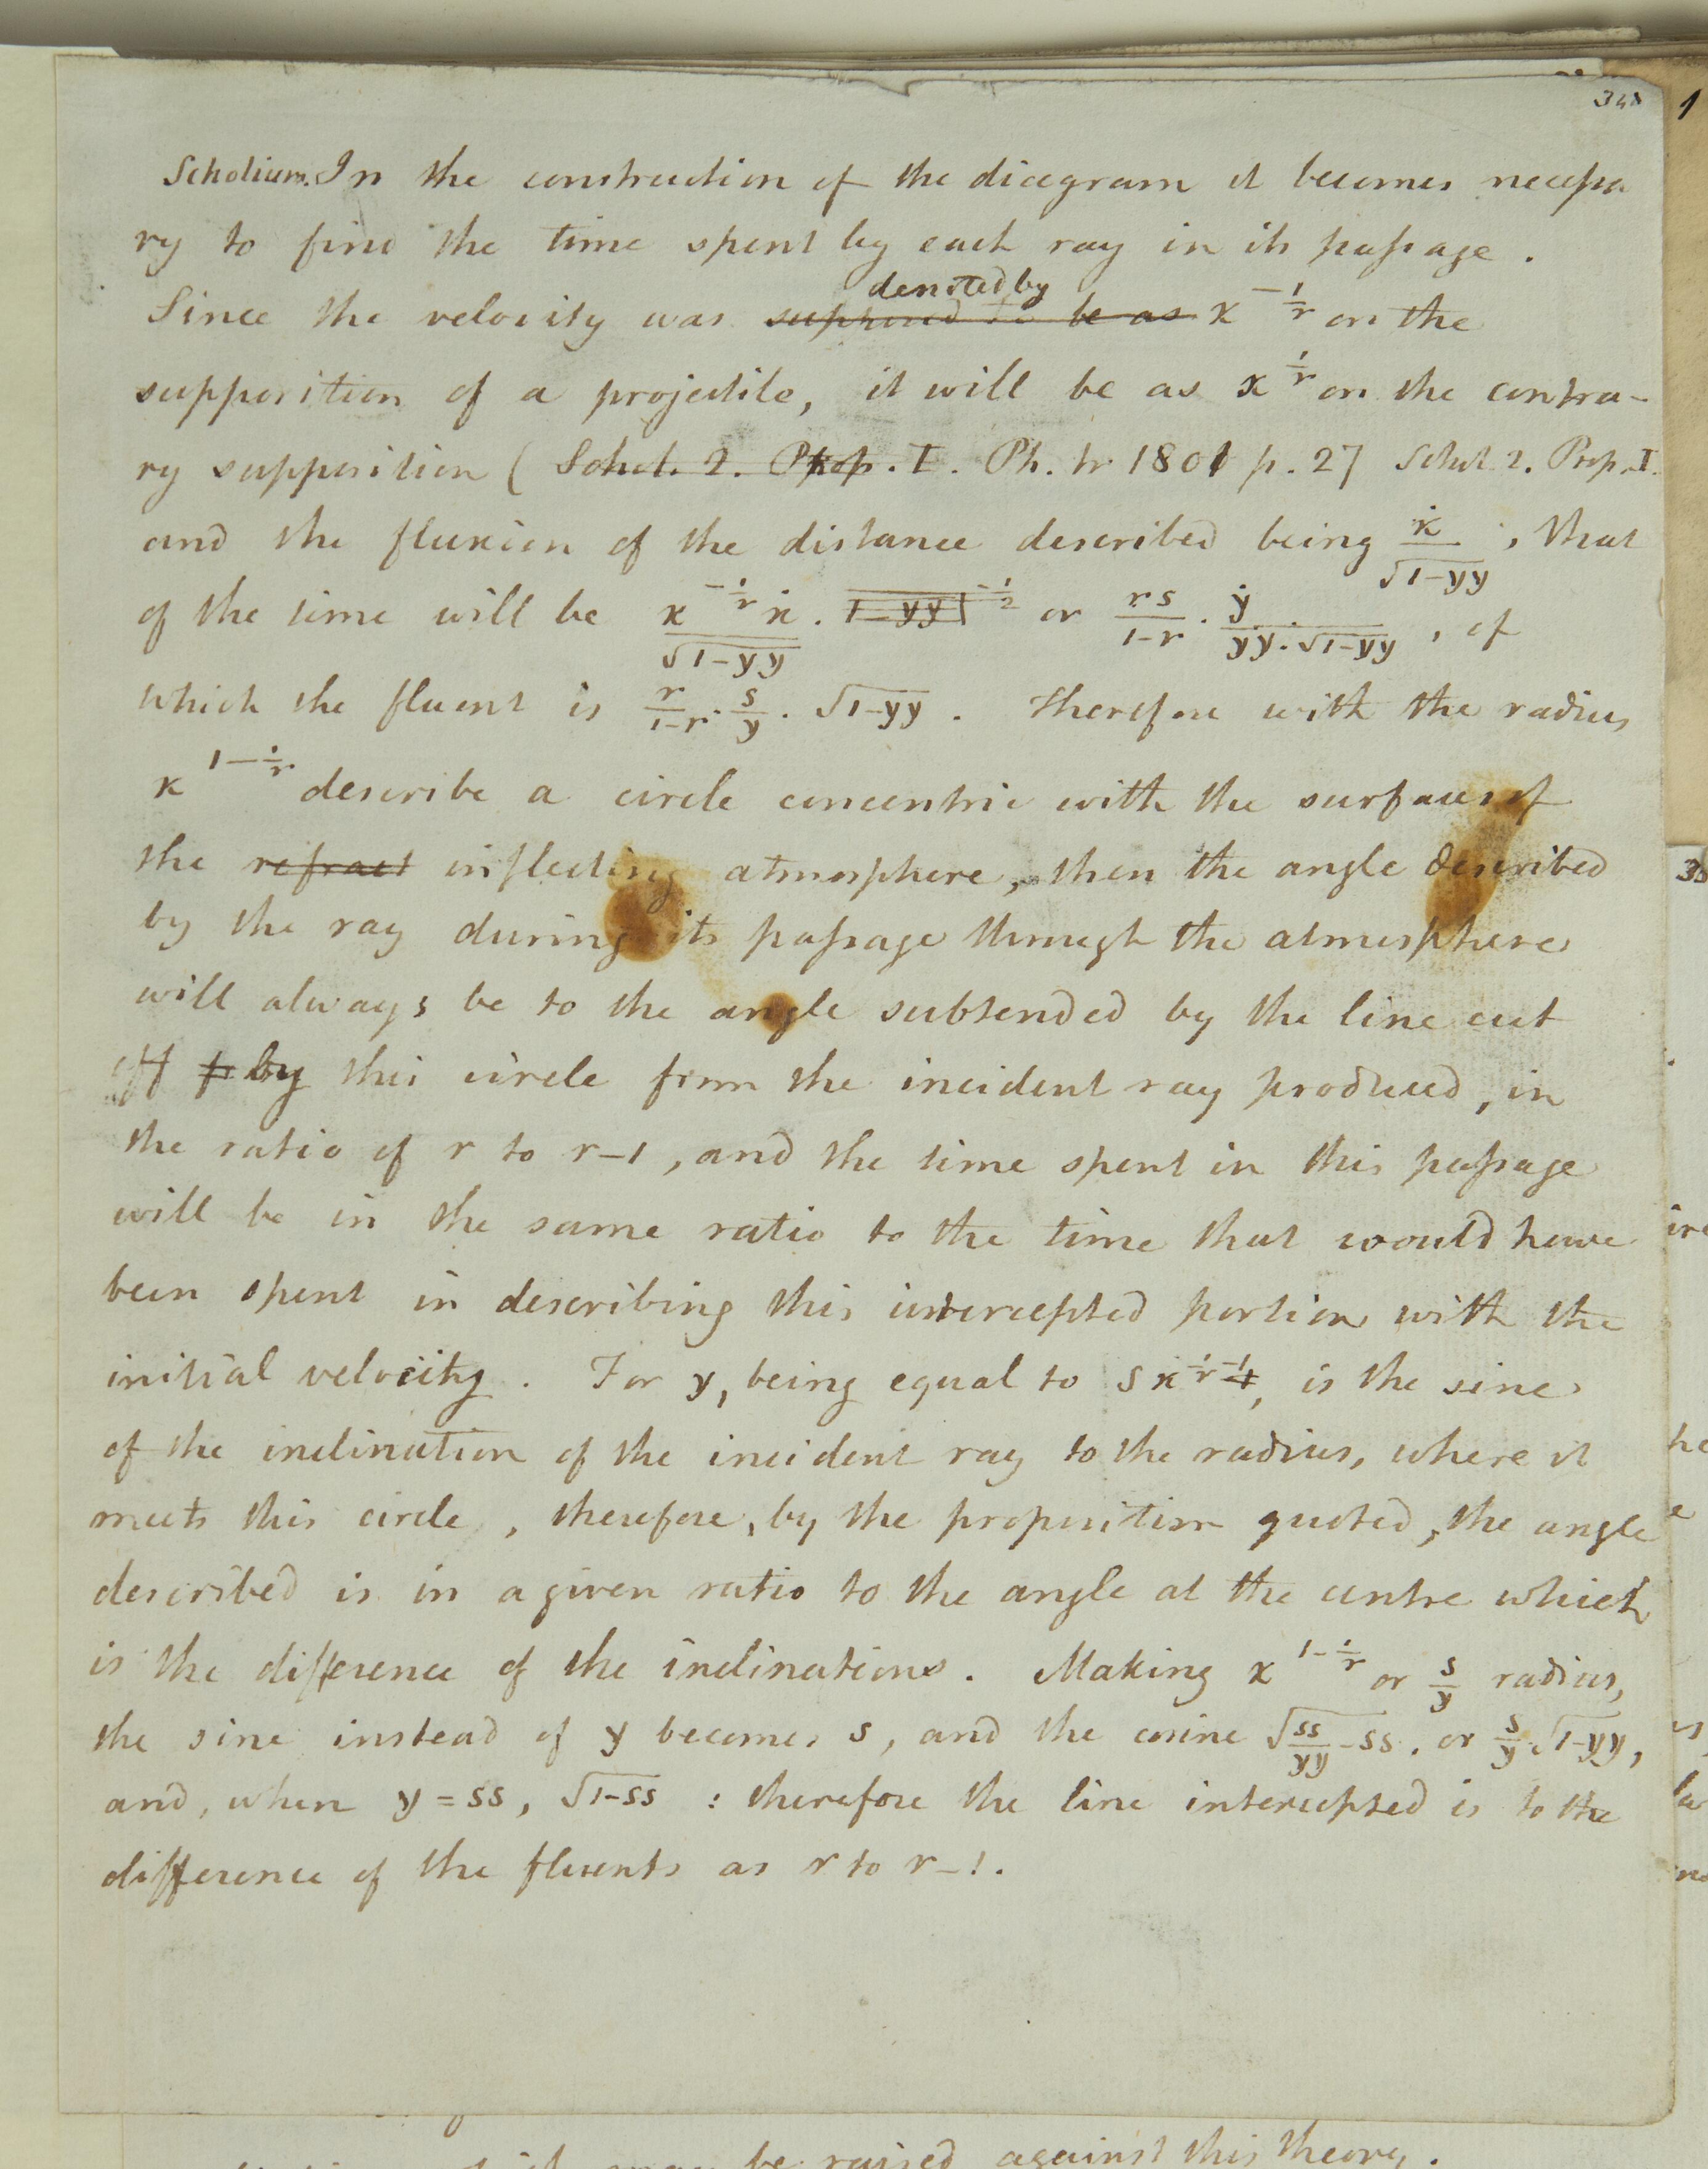 348
Scholium. In the construction of the diagram it becomes necessa
ry to find the time spent by each ray in its passage.
denoted by
Since the velocity was supposed to be as x^{-1/r} on the
supposition of a projectile, it will be as x^{1/r} on the contra-
ry supposition ( Schol. 2. Prop. I. Ph. tr 1801 p. 27 Schol 2. Prop. I.
and the fluxion of the distance described being ẋ/√(1-yy), that
of the time will be x^{-1/r}ẋ/√(1-yy) . 1-yy|^{-1/2} or rs/(1-r) . ẏ/(yy.√(1-yy)), of
which the fluent is r/(1-r) . s/y . √(1-yy). Therefore with the radius
x^{1-1/r} describe a circle concentric with the surfaces of
the refract inflecting atmosphere, then the angle described
by the ray during its passage through the atmosphere
will always be to the angle subtended by the line cut
off f by this circle from the incident ray produced, in
the ratio of r to r-1, and the time spent in this passage
will be in the same ratio to the time that would have
been spent in describing this intercepted portion with the
initial velocity. For y, being equal to sx^{1/r-1}, is the sine
of the inclination of the incident ray to the radius, where it
meets this circle, therefore, by the proposition quoted, the angle
described is in a given ratio to the angle at the centre which
is the difference of the inclinations. Making x^{1-1/r} or s/y radius,
the sine instead of y becomes s, and the cosine √(ss/yy-ss), or s/y.√(1-yy),
and, when y = ss, √(1-ss) : therefore the line intercepted is to the
difference of the fluents as r to r-1.
be raised against this theory.